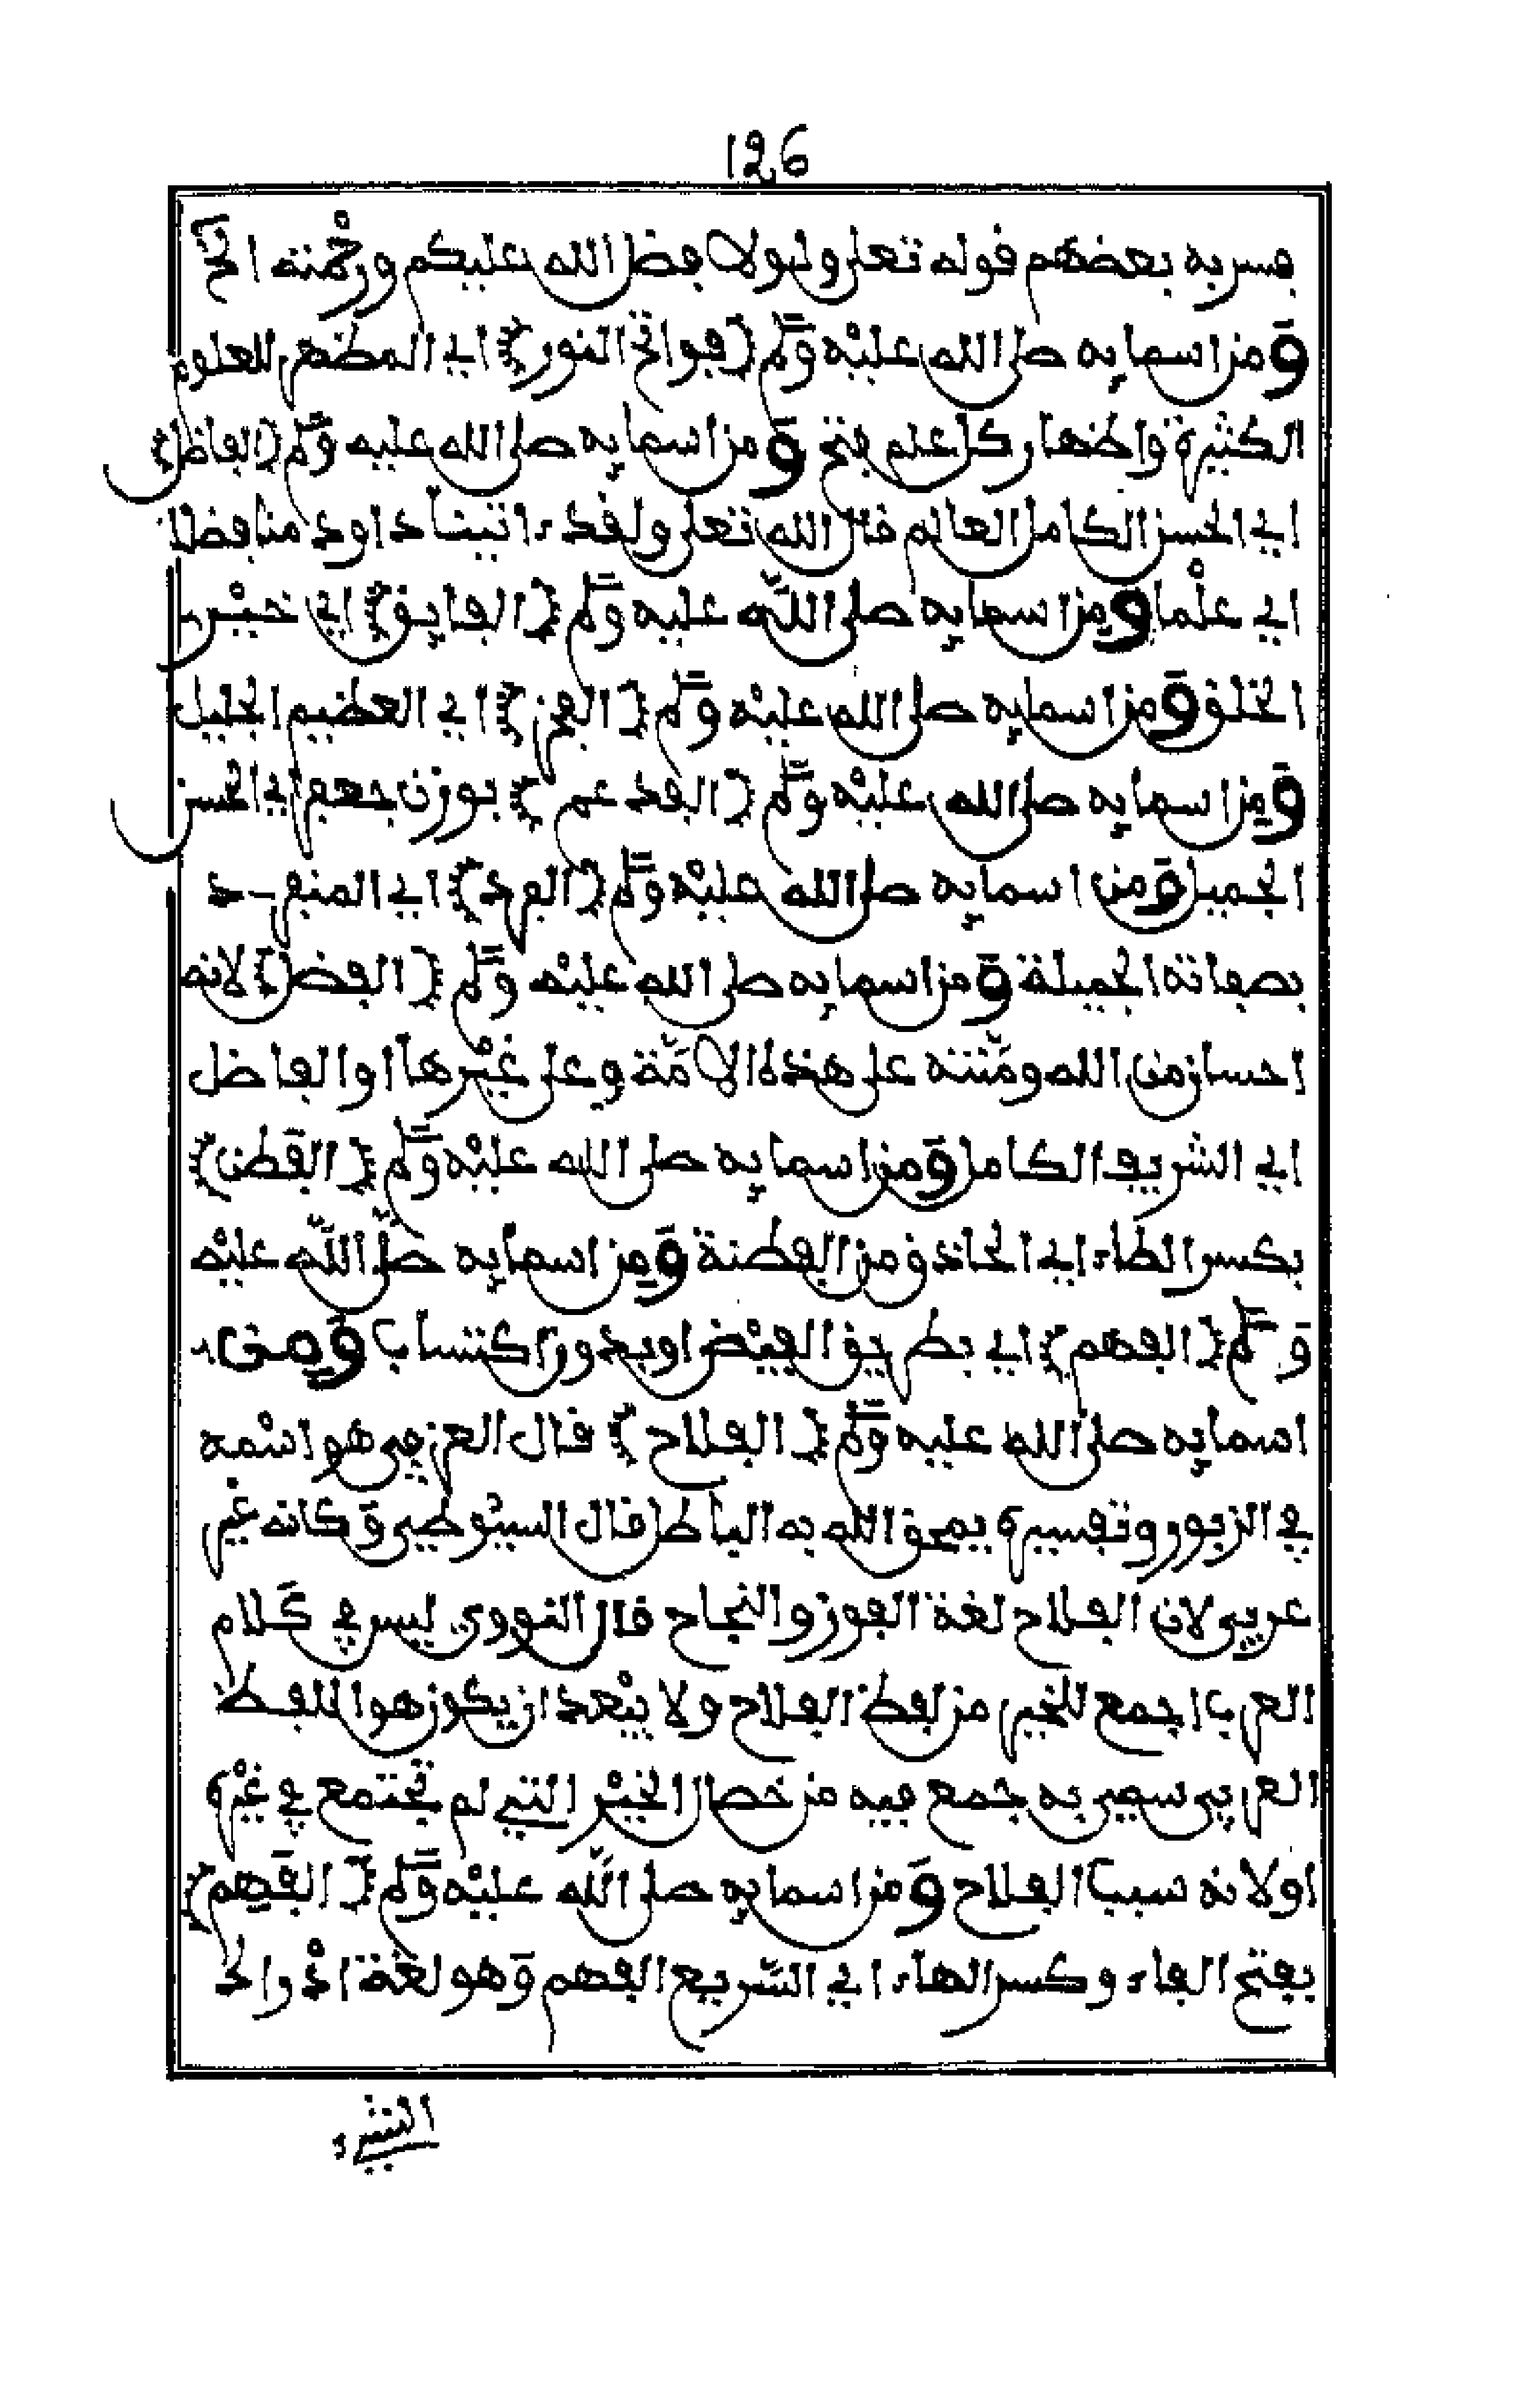 126
فسر به بعضهم قوله تعلى ولولا فضل الله عليكم ورحمته الخ
ومن اسمايه صلى الله عليه وسلم (فواتح النور) اي المظهر للعلوم
الكثيرة واظهار كل علم فتح ومن اسمايه صلى الله عليه وسلم (الفاضل)
اي الحسن الكامل العالم قال الله تعلى ولقد ءاتينا داود منا فضلا
اي علما ومن اسمايه صلى الله عليه وسلم (الفايق) اي خير
الخلق ومن اسمايه صلى الله عليه وسلم (الفخر) اي العظيم الجليل
ومن اسمايه صلى الله عليه وسلم (الفدعم) بوزن جعفر اي الحسن
الجميل ومن اسمايه صلى الله عليه وسلم (الفرد) اي المنفرد
بصفاته الجميلة ومن اسمايه صلى الله عليه وسلم (الفضل) لانه
احسان من الله ومنته على هذه الامة وعلى غيرها او الفاضل
اي الشريف الكامل ومن اسمايه صلى الله عليه وسلم (الفطن)
بكسر الطاء اي الحاذق من الفطنة ومن اسمايه صلى الله عليه
وسلم (الفهم) اي بطريق الفيض او بدون اكتساب ومن
اسمايه صلى الله عليه وسلم (الفلاح) قال العزفي هو اسمه
في الزبور وتفسيره يمحق الله به الباطل قال السيوطي وكانه غير
عربي لان الفلاح لغة الفوز والنجاح قال النووي ليس في كلام
العرب اجمع للخير من لفظ الفلاح ولا يبعد ان يكون هو اللفظ
العربي سمي به جمع فيه من خصال الخير التي لم تجتمع في غيره
او لانه سبب الفلاح ومن اسمايه صلى الله عليه وسلم (الفهم)
بفتح الفاء وكسر الهاء اي السريع الفهم وهو لغة ادراك
الشيء